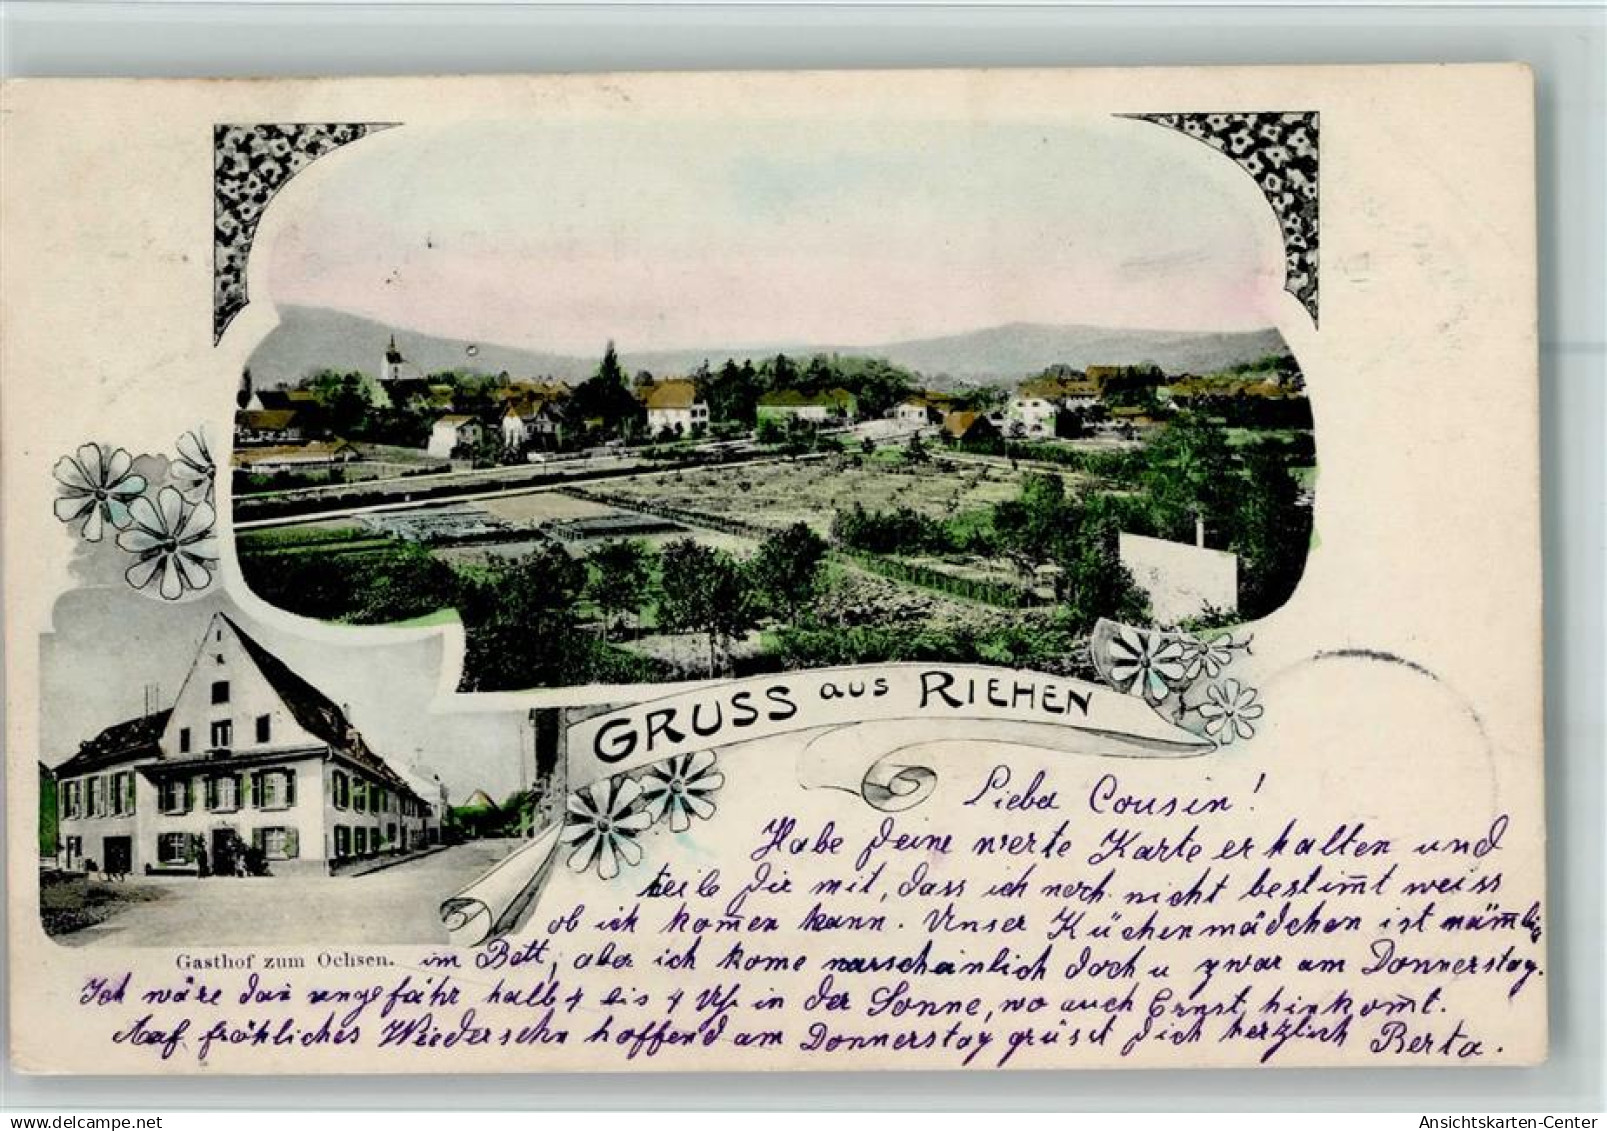 GRUSS aus RIEHEN
Gasthof zum Ochsen.
Liebe Cousin!
Habe deine werte Karte erhalten und
teile dir mit, dass ich noch nicht bestim̅t weiss
ob ich kom̅en kann. Unser Küchenmädchen ist näm̅lich
im Bett, aber ich kome warscheinlich doch u zwar am Donnerstag.
Ich wäre dan ungefähr halb 4 bis 4 Uhr in der Sonne, wo auch Ernst hinkom̅t.
Auf fröhliches Wiedersehn hoffend am Donnerstag grüsst dich herzlich Berta.
Ansichtskarten-Center
www.delcampe.net